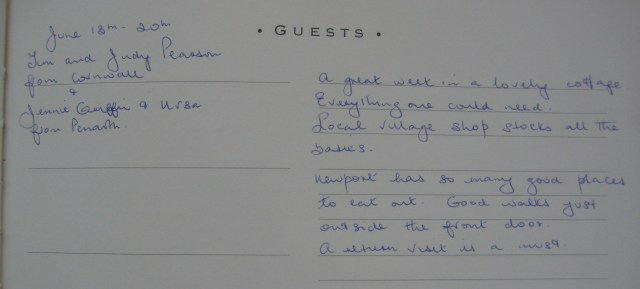 • GUESTS •
June 13th - 20th
Jim and Judy Pearson
from Cornwall
&
Jennie Griffin & Ursa
from Penarth.
A great week in a lovely cottage.
Everything one could need.
Local village shop stocks all the
basics.
Newport has so many good places
to eat out. Good walks just
outside the front door.
A return visit is a must